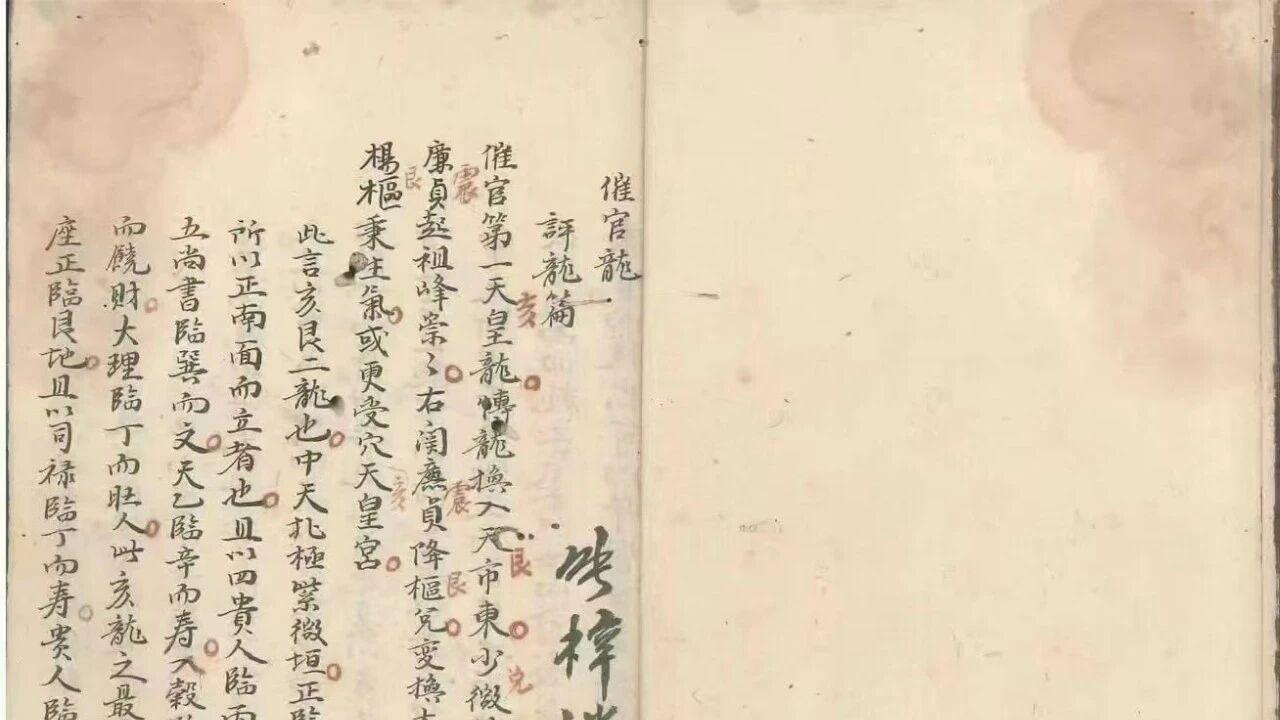 催官龍
評龍篇
催官第一天皇龍博龍換入天市東少微
廉貞起祖峰崇〻右関廉貞降樞兌変換
楊樞秉生氣或更受穴天皇宮
此言亥艮二龍也中天北極紫微垣正臨
所以正南面而立者也且以四貴人臨丙
五尚書臨巽而文天乙臨辛而寿入穀
而饒財大理臨丁而旺人此亥龍之最
座正臨艮地且以司禄臨丁而寿貴人臨
亥
艮
兌
震
震
艮
艮
亥
梓